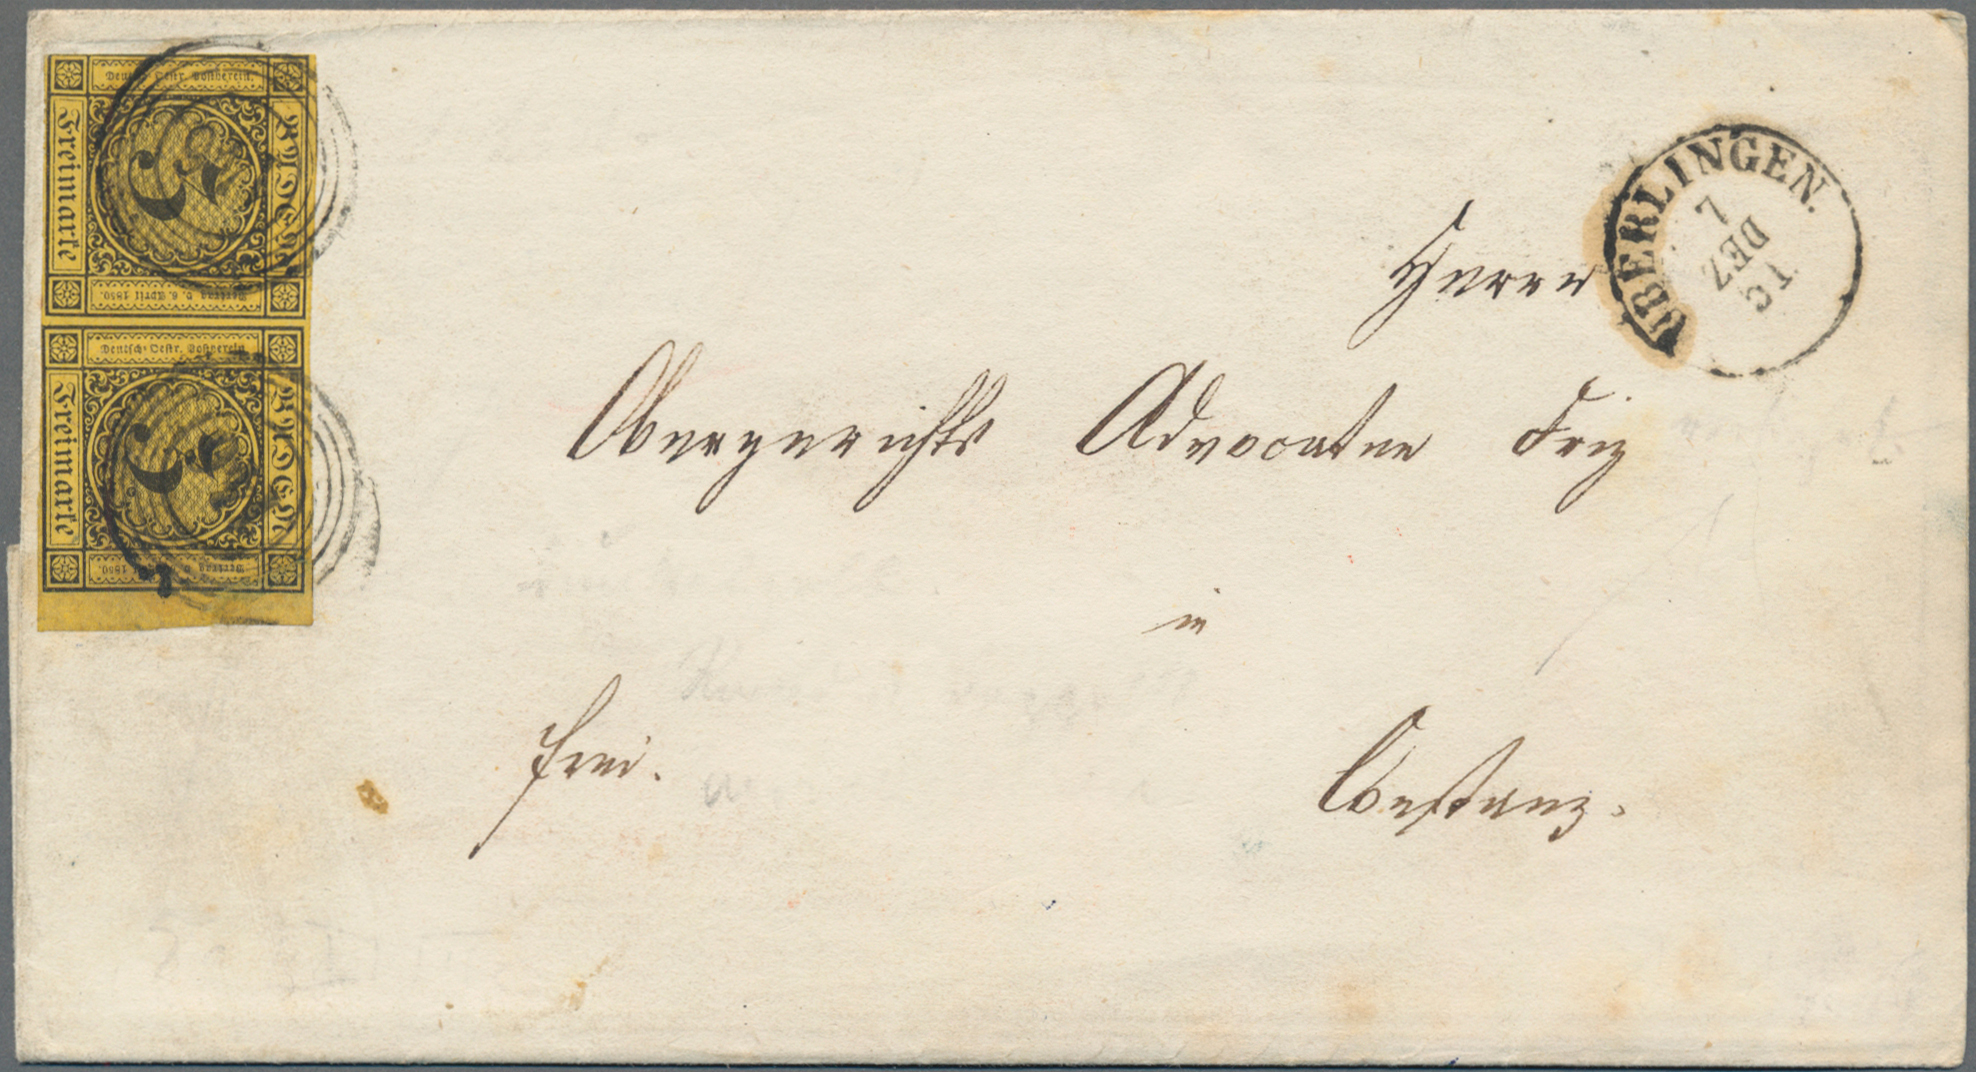 Deutsch-Oestr. Postverein.
BADEN
Freimarke
3
Vertrag v. 6. April 1850.
Deutsch-Oestr. Postverein.
BADEN
Freimarke
3
Vertrag v. 6. April 1850.
ÜBERLINGEN.
7
DEZ
Herrn
Obergerichts Advocaten Friz
in
frei.
Constanz.